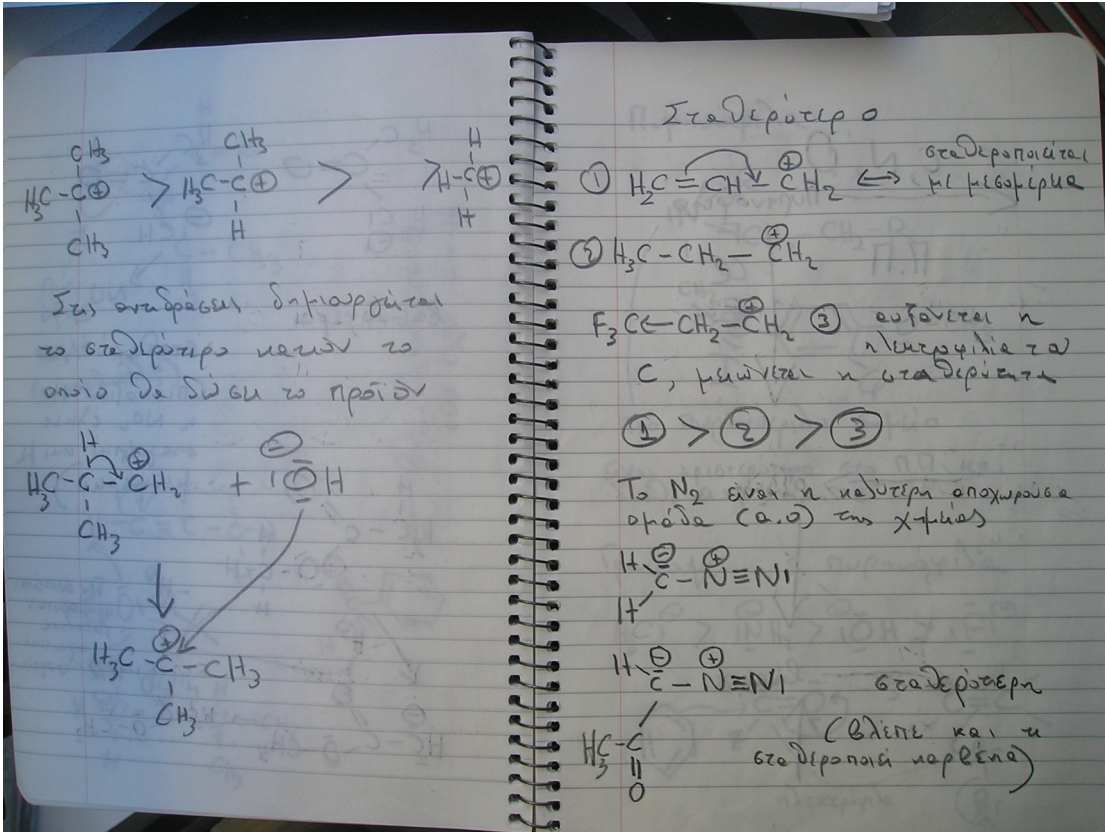 CH₃
H₃C-C⊕ > H₃C-C⊕ > >H-C⊕
CH₃
CH₃
H
H
H
Στις αντιδράσεις δημιουργείται
το σταθερότερο κατιόν το
οποίο θα δώσει το προϊόν
H ⊕ ⊖
H₃C-C-CH₂ + |OH
CH₃
⊕
H₃C-C-CH₃
CH₃
Σταθερότερο
① H₂C=CH-CH₂ ⊕ ↔ σταθεροποιείται
με μεσομέρεια
② H₃C-CH₂-CH₂ ⊕
F₃C←CH₂-CH₂ ⊕ ③ αυξάνεται η
ηλεκτροφιλία του
C, μειώνεται η σταθερότητα
① > ② > ③
Το N₂ είναι η καλύτερη αποχωρούσα
ομάδα (α.ο) της χημείας
H ⊖ ⊕
C-N≡N|
H
H ⊖ ⊕
C-N≡N| σταθερότερη
H₃C-C (βλέπε και τι
O σταθεροποιεί καρβένια)